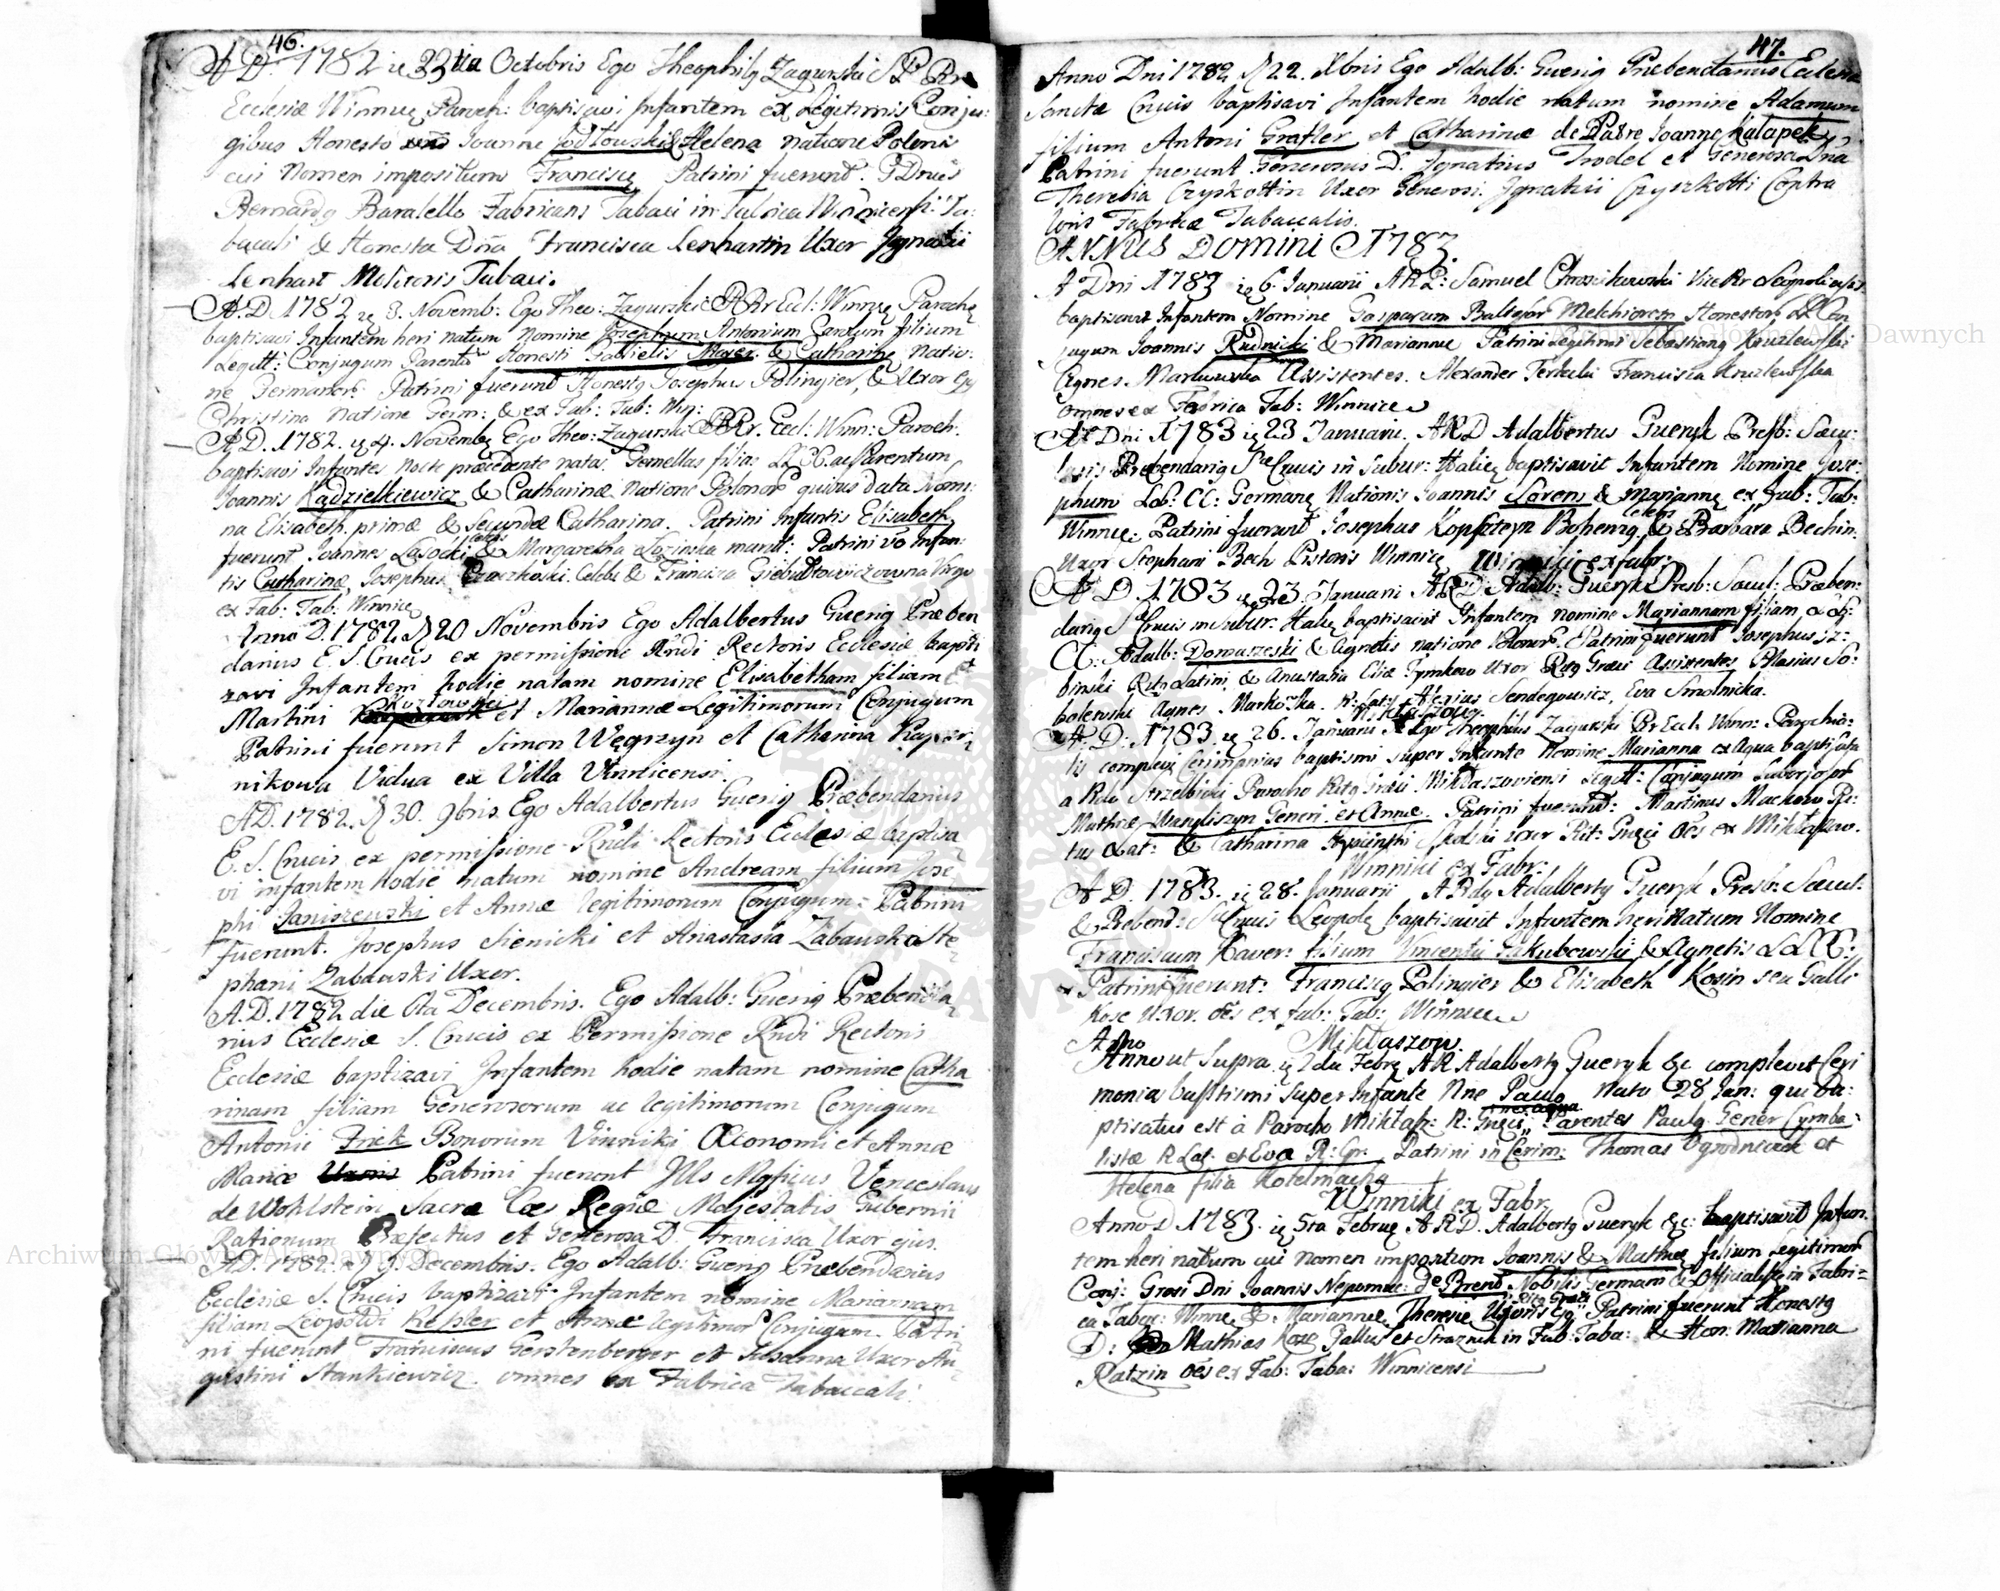 46.
A D. 1782 23tia Octobris Ego Theophilg Zagurski
Ecclesiæ Winnicę Paroch: baptisavi Infantem ex Legitimis Conju:
gibus Honesto Joanne Jodłowski & Helena natione Poloni
cui Nomen impositum Franciscg Patrini fuerunt.
Bernardg Baralello Fabricans Tabaci in Fabrica Winnicensi Ta:
bacali & Honesta Dña Francisca Lenhartin Uxor Ignatii
Lenhart Molitoris Tabaci.
A. D. 1782 8. Novemb: Ego Theo: Zagurski Eccl: Winnicę Parochg
baptisavi Infantem heri natum Nomine Josephum Antonium filium
Legitt: Conjugum Parentū Honesti Majer & Catharinę Natio:
ne Germanor: Patrini fuerunt Honestg Josephus Polingier, & Uxor
Christina Natione Germ: & ex Fab: Tab: Win:
A. D. 1782. 4. Novemb Ego Theo: Zagurski Eccl: Winn: Paroch:
baptisavi Infantes Nocte præcedente natas Gemellas filias Parentum
Joannis Kądzielkiewicz & Catharinæ Natione Polonor quibus data Nomi:
na Elisabeth. primæ & Secundæ Catharina. Patrini Infantis Elisabeth
fuerunt Joannes Lasocki & Margaretha Łozinska Patrini vō Infan:
tis Catharinæ, Josephus & Francisca Virgo
ex Fab: Tab: Winnicę
Anno D. 1782. 20 Novembris Ego Adalbertus Guerig Præben
darius E. S. Crucis ex permissione Rñdi Rectoris Ecclesiæ bapti
zavi Infantem hodie natam nomine Elisabetham filiam
Martini Kozłowski et Mariannæ Legitimorum Conjugum
Patrini fuerunt Simon Węgrzyn et Catharina
nikowa Vidua ex Villa Vinnicensi.
A.D. 1782. 30. 9bris. Ego Adalbertus Guerig Præbendarius
E. S. Crucis ex permissione Rñdi Rectoris Ecclesiæ baptisa
vi infantem hodie natum nomine Andream filium Jose
phi Janiszewski et Annæ legitimorum Conjugum. Patrini
fuerunt. Josephus Sienicki et Anastasia Zabawska Ste
phani Zabawski Uxor.
A.D. 1782 die 6ta Decembris. Ego Adalb: Guerig Præbenda
rius Ecclesiæ S. Crucis ex Permissione Rñdi Rectoris
Ecclesiæ baptizavi Infantem hodie natam nomine Catha
rinam filiam Generosorum ac legitimorum Conjugum
Antonii Frick Bonorum Vinniki Œconomi et Annæ
Mariæ Patrini fuerunt Ills Mgficus Venceslaus
de Wohlstein Sacræ Cæs Regiæ Majestatis Gubernii
Rationum Præfectus et Generosa D. Francisca Uxor ejus.
A.D. 1782. 9. Decembris. Ego Adalb: Guerig Præbendarius
Ecclesiæ S. Crucis baptizavi Infantem nomine Mariannam
filiam Leopoldi Kehler et Annæ legitimor Conjugum. Patri
ni fuerunt Franciscus Gerstenberger et Susanna Uxor Au
gustini Stankiewicz. omnes ex Fabrica Tabaccali.
47.
Anno Dni 1782 22. Xbris Ego Adalb: Guerig Præbendarius Ecclesiæ
Sanctæ Crucis baptisavi Infantem hodie natum nomine Adamum
filium Antoni Grafler et Catharinæ de Patre Joanne Kalapek
Patrini fuerunt Generosus D. Ignatius Trodel et Generosa Dna
Theresia Czyskottin Uxor Generosi Ignatii Czyszkotti Contra
loris Fabricæ Tabaccalis.
ANNUS Domini 1783.
A Dni 1783 6. Januarii A R P: Samuel Vice
baptisavit Infantem Nomine Gasparum Baltesar Melchiorem Honestor
jugum Joannis Rudnicki & Mariannæ Patrini Legitimi Sebastiang Kruzlewski
Agnes Markowska Assistentes. Alexander Francisca Kruzlewska
omnes ex Fabrica Tab: Winnice
A Dni 1783 23 Januarii. A R D Adalbertus Gueryk Presb: Sæcu:
laris Prebendarig Ste Crucis in Subur: Halicz baptisavit Infantem Nomine Jose:
phum Germanę Nationis Joannis Lorens & Mariannę ex Fab: Tab:
Winnic: Patrini fuerunt Josephus Kopfsteyn Bohemg & Barbara Bechin
Uxor Stephani Bech Pistoris Winnice Winniki ex fabr:
A D. 1783 23 Januarii A R D Adalb: Gueryk Presb: Sæcul: Præben:
darig S Crucis in Subur: Halicz baptisavit Infantem nomine Mariannam filiam
CC. Adalb: Domaszeski & Agnetis natione Polonor. Patrini fuerunt Josephus
binski Ritg Latini & Anastasia Eliæ Tymkow Uxor Ritg Græci Assistentes Blasius So:
bolewski Agnes Alexius Sendegowicz, Eva Smolnicka.
A. D. 1783. 26. Januarii Ego Theophilus Zagurski Eccl: Winn: Parochia:
lis complevi Cerimonias baptismi super Infante Nomine Marianna ex Aqua baptisata
a Rdo Strzelbicki Parocho Ritg Græci Mikłaszoviensi Legitt: Conjugum
Mathiæ Wangliszyn Generi et Annæ. Patrini fuerunt: Martinus Machow Ri:
tus Lat: & Catharina Hyacinthi uxor Rit: Græci oēs ex Mikłaszow.
Winniki ex Fabr:
A D. 1783. 28. Januarii A Rdg Adalbertg Gueryk Presb: Sæcul:
& Prebend: Ste Crucis Leopolę baptisavit Infantem heri Natum Nomine
Franciscum Xaver: filium Vincentii Jakubowski & Agnetis
Patrini fuerunt: Franciscg Polingier & Elisabeth Kosin seu Galli
Kose Uxor. oēs ex fab: Tab: Winnice
Mikłaszow.
Anno ut Supra 2da Febrg A R Adalbertg Gueryk &c complevit Ceri
monia baptismi Super Infante Nne Paulo Nato 28 Jan: qui ba:
ptisatus est à Parocho Mikłasz: R: Græci ex aqua Parentes Paulg Gener Cymba:
listæ R Lat: et Eva R: Gr: Patrini in Cerim: Thomas Ogrodniczek et
Helena filia Kotelmacha
Winniki ex Fabr.
Anno D 1783. 5ta Februę A R D. Adalbertg Gueryk &c: baptisavit Infan:
tem heri natum cui Nomen impositum Joannis & Mathiæ filium Legitimor
Conj: Grosi Dni Joannis Nepomuc: de Brend Nobilis Germani & Officialistę in Fabri:
ca Tabac: Winnc & Mariannæ Theresiæ Uxoris Patrini fuerunt Honestg
D: Mathias Kose Pallus et Straznik in Fab: Taba: & Hon: Marianna
Ratzin oēs ex Fab: Taba: Winnicensi
Archiwum Główne Akt Dawnych
Archiwum Główne Akt Dawnych